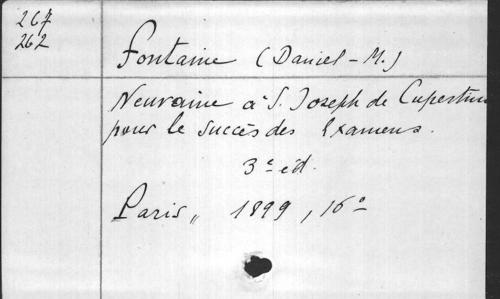 267
262
Fontaine (Daniel-M.)
Neuvaine à S. Joseph de Cupertino
pour le succès des Examens.
3e éd.
Paris, 1899, 16o